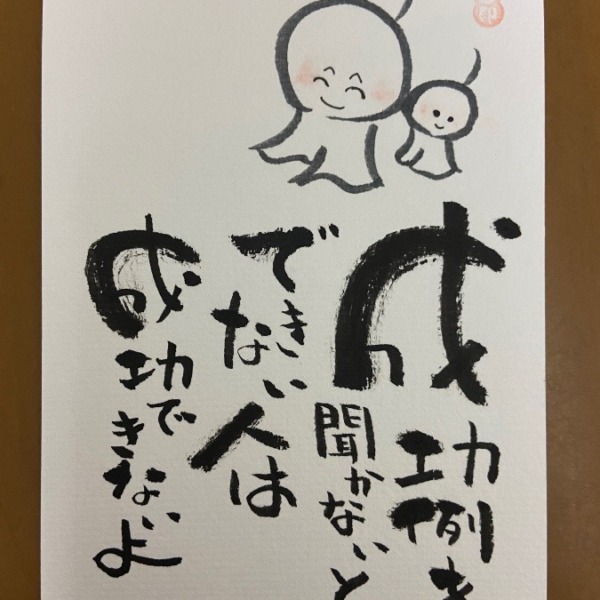 成功例を
聞かないと
できない人は
成功できないよ